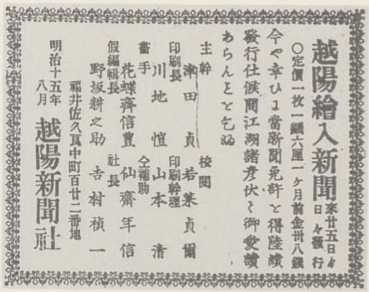 越陽繪入新聞 来廿五日ゟ日々發行
○定價一枚一錢六厘一ヶ月前金卅八錢
今や幸ひよ當新聞免許を得陸續
發行仕候間江湖諸彦伏して御愛讀
あらんことを乞ふ
主幹 津田貞 校閲 若菜貞爾
印刷長 川地愷 印刷幹理 山本清
畫手 花蝶齊信實 仝補助 仙齋年信
假編輯長 野坂耕之助 社長 吉村楨一
福井佐久良中町百廿二番地
明治十五年八月 越陽新聞社